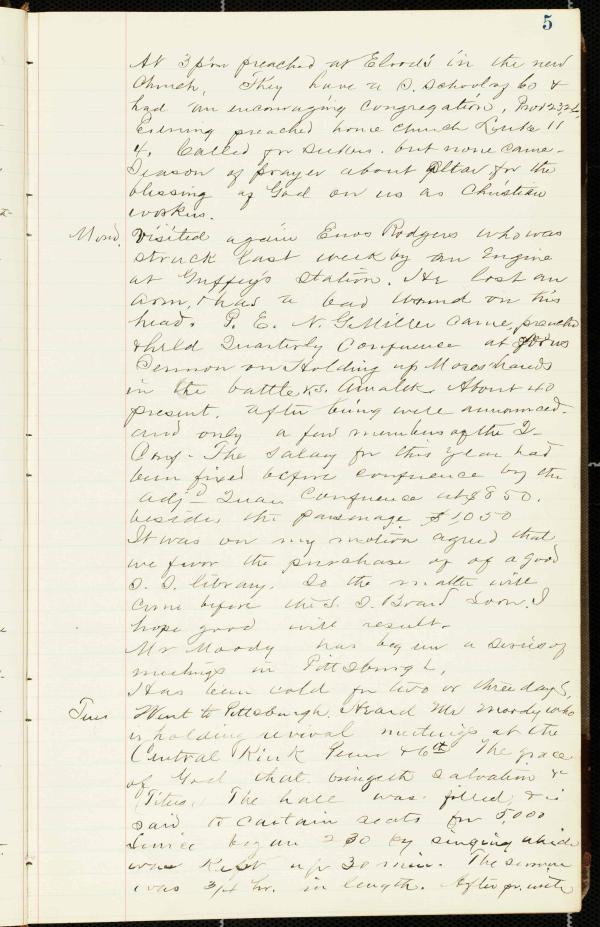 5
At 3 pm preached at Elrod's in the new
church. They have a S. School of 60 &
had an encouraging congregation. Prov
Evening preached home church Luke 11
4. Called for seekers. but none came.
Season of prayer about altar for the
blessing of God on us as Christian
workers.
Mond. Visited again Enos Rodgers who was
struck last week by an Engine
at Guffey's Station. He lost an
arm, & has a bad wound on his
head. P. E. N. G. Miller came, preached
& held Quarterly Conference at
Sermon on Holding up Moses hands
in the battle vs. Amalek. About 40
present. after being well announced.
and only a few members of the Q-
Conf- The salary for this year had
been fixed before conference by the
adjd Quar. Conference at $850.
beside the parsonage $1,050
It was on my motion agreed that
we favor the purchase of of a good
S. S. library. So the matter will
come before the S. S. Board soon. I
hope good will result.
Mr Moody has begun a series of
meetings in Pittsburgh.
Has been cold for two or three days.
Tues Went to Pittsburgh. Heard Mr. Moody who
is holding revival meetings at the
Central Rink Penn & 6th The grace
of God that bringeth salvation &c
Titus. The hall was filled, & is
said to contain seats for 5,000
Service began 2 30 by singing which
was kept up 30 min. The sermon
was 3/4 hr. in length. After pr. with